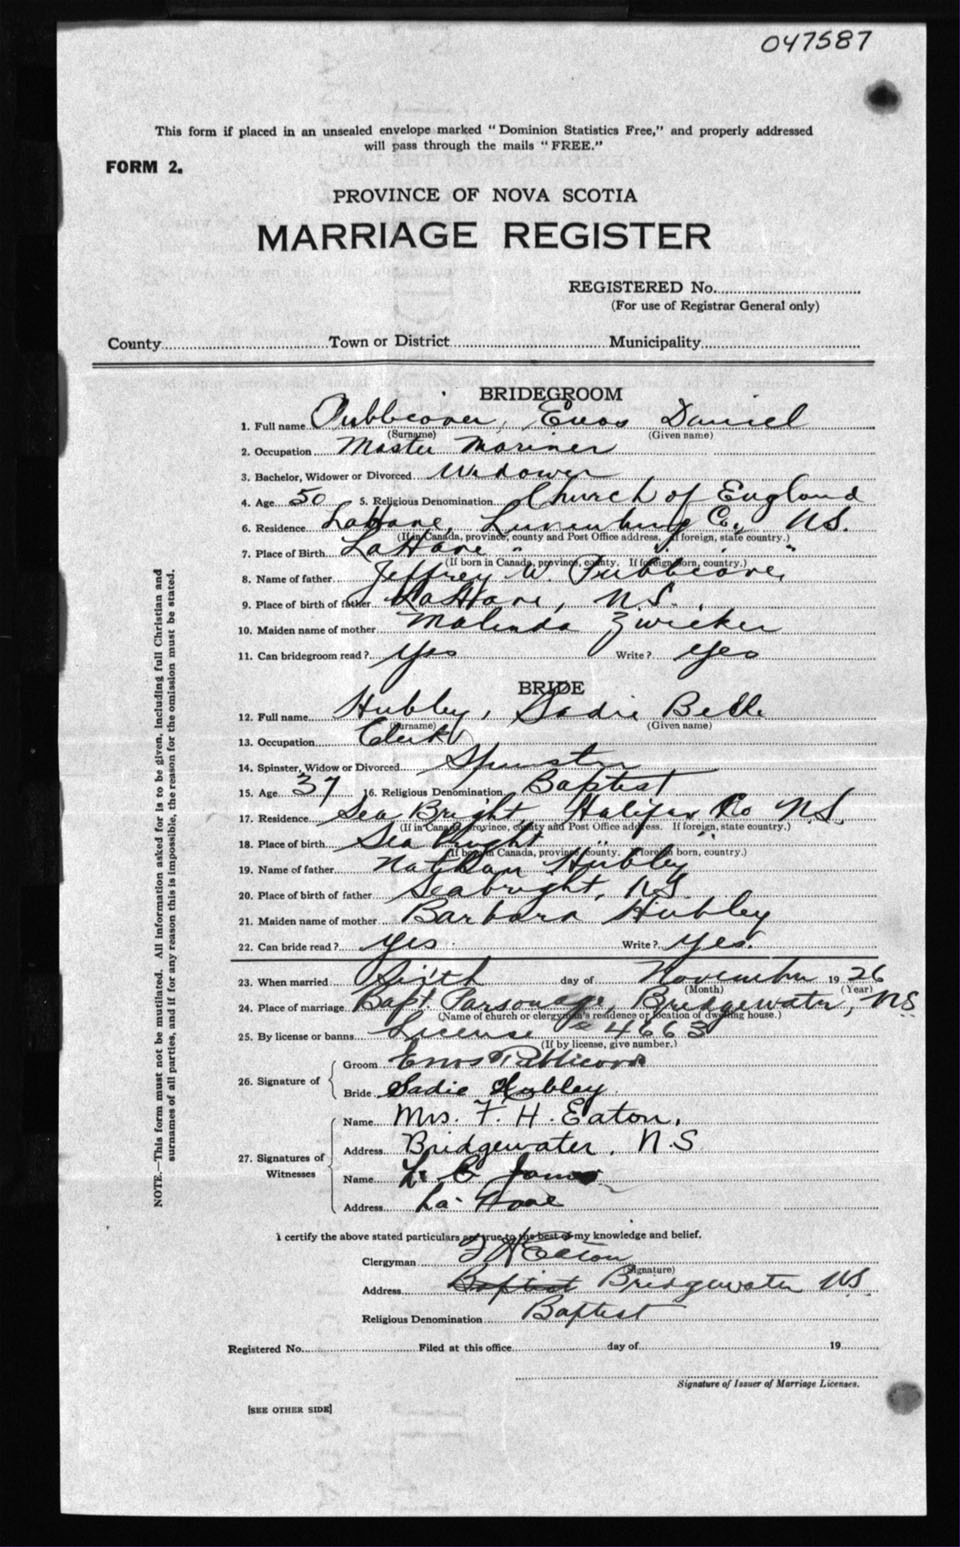 047587
This form if placed in an unsealed envelope marked "Dominion Statistics Free," and properly addressed
will pass through the mails "FREE."
FORM 2.
PROVINCE OF NOVA SCOTIA
MARRIAGE REGISTER
REGISTERED No.
(For use of Registrar General only)
County Town or District Municipality
BRIDEGROOM
1. Full name Publicover, Enos Daniel
(Surname) (Given name)
2. Occupation Master Mariner
3. Bachelor, Widower or Divorced Widower
4. Age 50 5. Religious Denomination Church of England
6. Residence LaHave, Lunenburg Co., N.S.
(If in Canada, province, county and Post Office address. If foreign, state country.)
7. Place of Birth LaHave " "
(If born in Canada, province, county. If foreign born, country.)
8. Name of father Jeffrey W. Publicover
9. Place of birth of father LaHave, N.S.
10. Maiden name of mother Malinda Zwicker
11. Can bridegroom read? yes Write? yes
BRIDE
12. Full name Hubley, Sadie Belle
(Surname) (Given name)
13. Occupation Clerk
14. Spinster, Widow or Divorced Spinster
15. Age 37 16. Religious Denomination Baptist
17. Residence Sea Bright, Halifax Co N.S.
(If in Canada, province, county and Post Office address. If foreign, state country.)
18. Place of birth Sea Bright " "
(If born in Canada, province, county. If foreign born, country.)
19. Name of father Nathan Hubley
20. Place of birth of father Seabright, N.S.
21. Maiden name of mother Barbara Hubley
22. Can bride read? yes Write? yes.
23. When married Sixth day of November 1926
(Month) (Year)
24. Place of marriage Bapt. Parsonage, Bridgewater, N.S.
(Name of church or clergyman's residence or location of dwelling house.)
25. By license or banns License 4663
(If by license, give number.)
26. Signature of
Groom Enos Publicover
Bride Sadie Hubley
27. Signatures of Witnesses
Name Mrs. F. H. Eaton,
Address Bridgewater, N S
Name L. C.
Address La Have
I certify the above stated particulars are true to the best of my knowledge and belief.
Clergyman F H Eaton
(Signature)
Address Baptist Bridgewater N.S.
Religious Denomination Baptist
Registered No. Filed at this office day of 19
Signature of Issuer of Marriage Licenses.
[SEE OTHER SIDE]
NOTE.—This form must not be mutilated. All information asked for is to be given, including full Christian and
surnames of all parties, and if for any reason this is impossible, the reason for the omission must be stated.